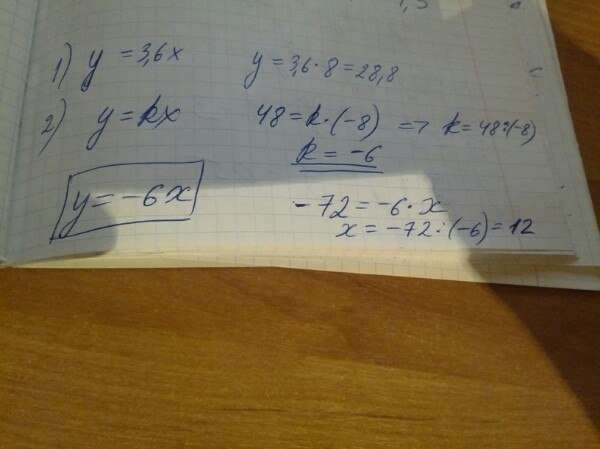 1) y = 3,6x y = 3,6 · 8 = 28,8
2) y = kx 48 = k · (-8) => k = 48 : (-8)
k = -6
y = -6x
-72 = -6 · x
x = -72 : (-6) = 12